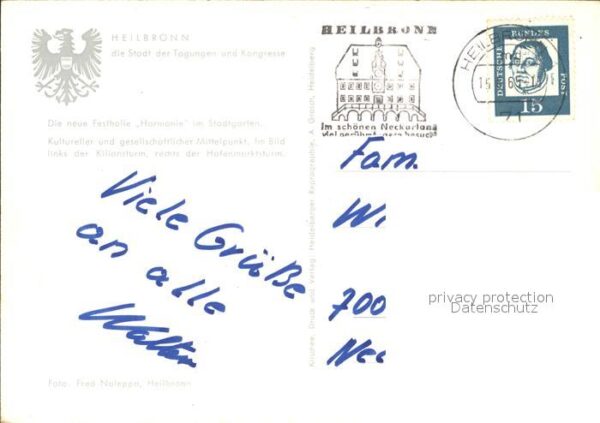 HEILBRONN
die Stadt der Tagungen und Kongresse
Die neue Festhalle „Harmonie" im Stadtgarten.
Kultureller und gesellschaftlicher Mittelpunkt. Im Bild
links der Kiliansturm, rechts der Hafenmarktsturm.
Viele Grüße
an alle
Walter
Foto: Fred Naleppa, Heilbronn
Heidelberger Reprographie, A. Grosch, Heidelberg
HEILBRONN
Im schönen Neckarland
viel gerühmt, gern besucht
HEILBRONN
15
DEUTSCHE BUNDES POST
15
Fam.
Wi
700
privacy protection
Datenschutz